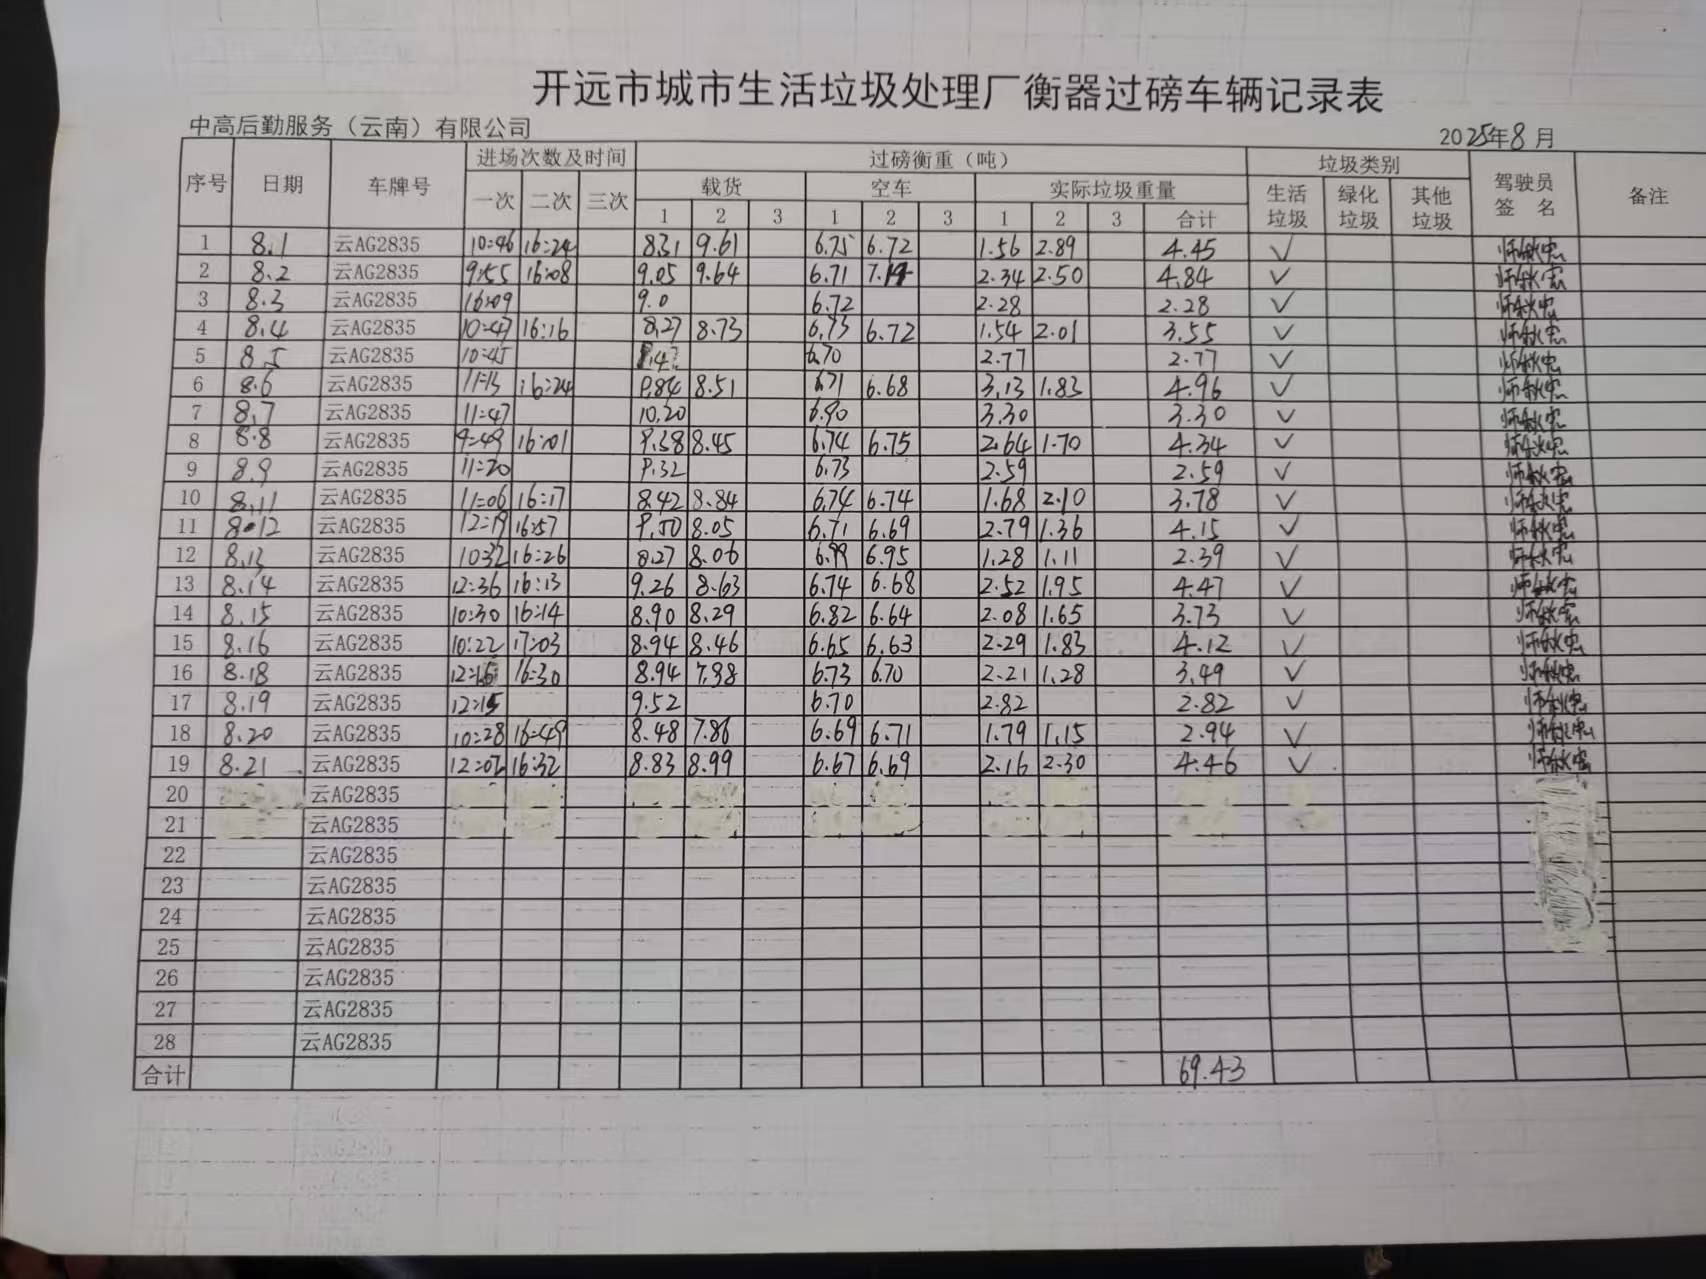 开远市城市生活垃圾处理厂衡器过磅车辆记录表
中高后勤服务（云南）有限公司 2025年8月
序号 日期 车牌号 进场次数及时间 过磅衡重（吨） 垃圾类别 驾驶员签 名 备注
一次 二次 三次 载货 空车 实际垃圾重量 生活垃圾 绿化垃圾 其他垃圾
1 2 3 1 2 3 1 2 3 合计
1 8.1 云AG2835 10:46 16:24 8.31 9.61 6.75 6.72 1.56 2.89 4.45 √
2 8.2 云AG2835 9:55 16:08 9.05 9.64 6.71 7.14 2.34 2.50 4.84 √
3 8.3 云AG2835 16:09 9.0 6.72 2.28 2.28 √
4 8.4 云AG2835 10:47 16:16 8.27 8.73 6.73 6.72 1.54 2.01 3.55 √
5 8.5 云AG2835 10:45 9.47 6.70 2.77 2.77 √
6 8.6 云AG2835 11:13 16:24 9.84 8.51 6.71 6.68 3.13 1.83 4.96 √
7 8.7 云AG2835 11:47 10.20 6.90 3.30 3.30 √
8 8.8 云AG2835 9:49 16:01 9.38 8.45 6.74 6.75 2.64 1.70 4.34 √
9 8.9 云AG2835 11:20 9.32 6.73 2.59 2.59 √
10 8.11 云AG2835 11:06 16:17 8.42 8.84 6.74 6.74 1.68 2.10 3.78 √
11 8.12 云AG2835 12:19 16:57 9.50 8.05 6.71 6.69 2.79 1.36 4.15 √
12 8.13 云AG2835 10:32 16:26 8.27 8.06 6.99 6.95 1.28 1.11 2.39 √
13 8.14 云AG2835 12:36 16:13 9.26 8.63 6.74 6.68 2.52 1.95 4.47 √
14 8.15 云AG2835 10:30 16:14 8.90 8.29 6.82 6.64 2.08 1.65 3.73 √
15 8.16 云AG2835 10:22 17:03 8.94 8.46 6.65 6.63 2.29 1.83 4.12 √
16 8.18 云AG2835 12:16 16:30 8.94 7.98 6.73 6.70 2.21 1.28 3.49 √
17 8.19 云AG2835 12:15 9.52 6.70 2.82 2.82 √
18 8.20 云AG2835 10:28 16:49 8.48 7.86 6.69 6.71 1.79 1.15 2.94 √
19 8.21 云AG2835 12:02 16:32 8.83 8.99 6.67 6.69 2.16 2.30 4.46 √
20 云AG2835
21 云AG2835
22 云AG2835
23 云AG2835
24 云AG2835
25 云AG2835
26 云AG2835
27 云AG2835
28 云AG2835
合计 69.43